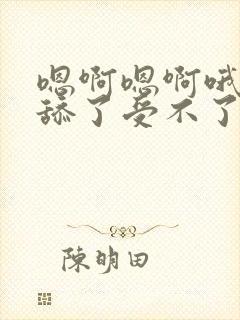 嗯啊嗯啊哦
舔了受不了
陳明田